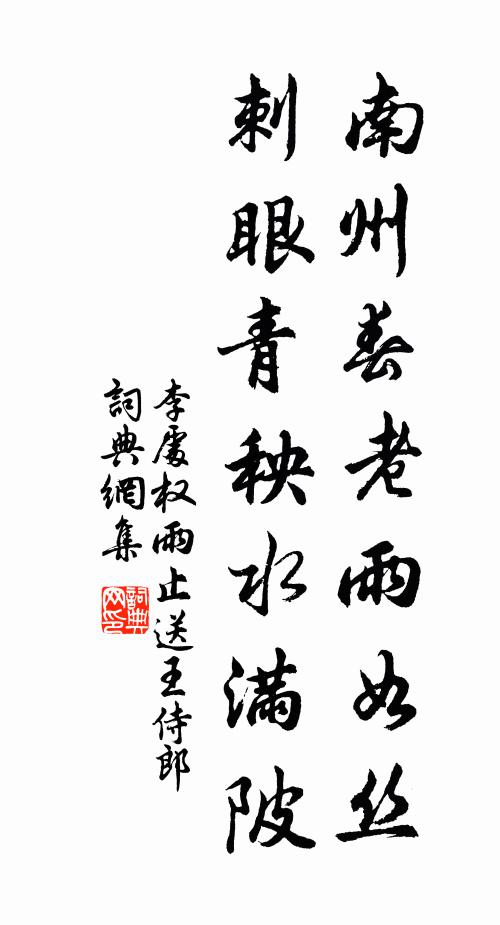 南州春老雨如丝
刺眼青秧水满陂
李處权雨止送王侍郎
詞典網集
詞典网印